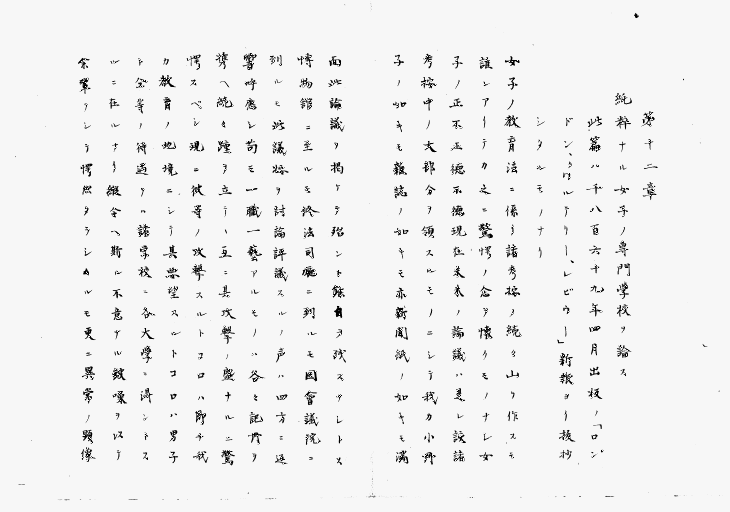 第十二章
純粋ナル女子ノ専門学校ヲ論ス
此篇ハ千八百六十九年四月出板ノ「ロン
ドン、クワルテリー、レビウー」新報ヨリ抜抄
シタルモノナリ
女子ノ教育法ニ係ル諸考按ノ続々山ヲ作スモ
誰レアリテカ之ニ驚愕ノ念ヲ懐クモノナレ女
子ノ正不正徳不徳現在未来ノ論議ハ美レ談諸
考按中ノ大部分ヲ領スルモノニシテ我カ小冊
子ノ如キモ雑誌ノ如キモ亦新聞紙ノ如キモ満
面此論議ヲ掲ケテ殆ント餘白ヲ残スナレトス
博物館ニ至ルモ終法司廰ニ到ルモ国會議院ニ
列ルモ此議塲ヲ討論評議スルノ声ハ四方ニ反
響呼應シ苟モ一職一藝アルモノハ各々記者ヲ
携ヘ続々踵ヲ立テ互ニ其攻撃ノ盛ナルニ驚
愕スベシ現ニ彼等ノ攻撃スルトコロハ即チ我
カ教育ノ地境ニシテ其要望スルトコロハ男子
ト仝等ノ待遇ヲ諸学校ニ各大学ニ得ントス
ルニ在ルナリ縦令ヘ斯ル不意ナル鼓噪ヲ以テ
余輩ヲシテ愕然タラシムルモ更ニ異常ノ顕像